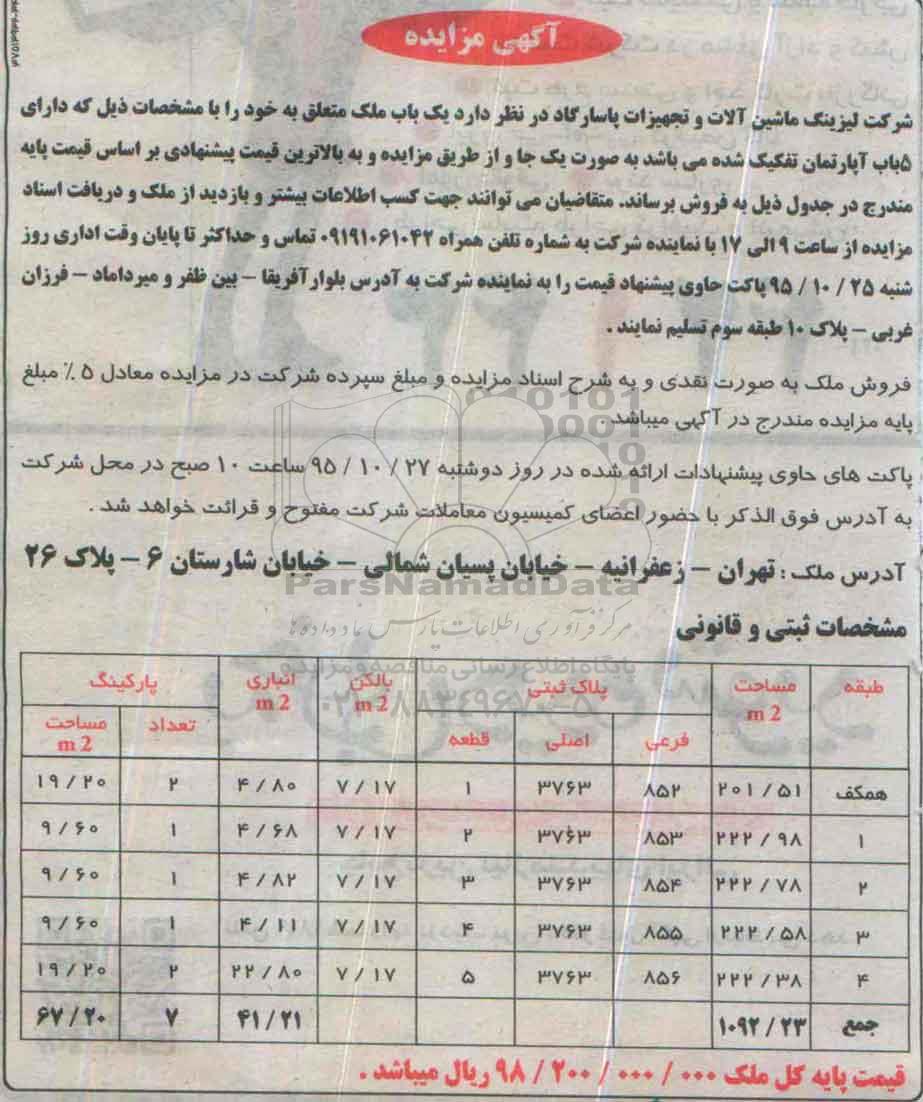 آگهی مزایده
شرکت لیزینگ ماشین آلات و تجهیزات پاسارگاد در نظر دارد یک باب ملک متعلق به خود را با مشخصات ذیل که دارای
۵باب آپارتمان تفکیک شده می باشد به صورت یک جا و از طریق مزایده و به بالاترین قیمت پیشنهادی بر اساس قیمت پایه
مندرج در جدول ذیل به فروش برساند. متقاضیان می توانند جهت کسب اطلاعات بیشتر و بازدید از ملک و دریافت اسناد
مزایده از ساعت ۹ الی ۱۷ با نماینده شرکت به شماره تلفن همراه ۰۹۱۹۱۰۶۱۰۴۲ تماس و حداکثر تا پایان وقت اداری روز
شنبه ۲۵ / ۱۰ / ۹۵ پاکت حاوی پیشنهاد قیمت را به نماینده شرکت به آدرس بلوار آفریقا – بین ظفر و میرداماد – فرزان
غربی – پلاک ۱۰ طبقه سوم تسلیم نمایند .
فروش ملک به صورت نقدی و به شرح اسناد مزایده و مبلغ سپرده شرکت در مزایده معادل ۵ ٪ مبلغ
پایه مزایده مندرج در آگهی میباشد.
پاکت های حاوی پیشنهادات ارائه شده در روز دوشنبه ۲۷ / ۱۰ / ۹۵ ساعت ۱۰ صبح در محل شرکت
به آدرس فوق الذکر با حضور اعضای کمیسیون معاملات شرکت مفتوح و قرائت خواهد شد .
آدرس ملک : تهران – زعفرانیه – خیابان پسیان شمالی – خیابان شارستان ۶ – پلاک ۲۶
ParsNamadData
مرکز فرآوری اطلاعات پارس نماد داده ها
مشخصات ثبتی و قانونی
پایگاه اطلاع رسانی مناقصه و مزایده
۰۲۱-۸۸۳۴۹۶۷۰-۵
طبقه مساحت m 2 پلاک ثبتی بالکن m 2 انباری m 2 پارکینگ
فرعی اصلی قطعه تعداد مساحت m 2
همکف ۲۰۱ / ۵۱ ۸۵۲ ۳۷۶۳ ۱ ۷ / ۱۷ ۴ / ۸۰ ۲ ۱۹ / ۲۰
۱ ۲۲۲ / ۹۸ ۸۵۳ ۳۷۶۳ ۲ ۷ / ۱۷ ۴ / ۶۸ ۱ ۹ / ۶۰
۲ ۲۲۲ / ۷۸ ۸۵۴ ۳۷۶۳ ۳ ۷ / ۱۷ ۴ / ۸۲ ۱ ۹ / ۶۰
۳ ۲۲۲ / ۵۸ ۸۵۵ ۳۷۶۳ ۴ ۷ / ۱۷ ۴ / ۱۱ ۱ ۹ / ۶۰
۴ ۲۲۲ / ۳۸ ۸۵۶ ۳۷۶۳ ۵ ۷ / ۱۷ ۲۲ / ۸۰ ۲ ۱۹ / ۲۰
جمع ۱۰۹۲ / ۲۳ ۴۱ / ۲۱ ۷ ۶۷ / ۲۰
قیمت پایه کل ملک ۰۰۰ / ۰۰۰ / ۲۰۰ / ۹۸ ریال میباشد .